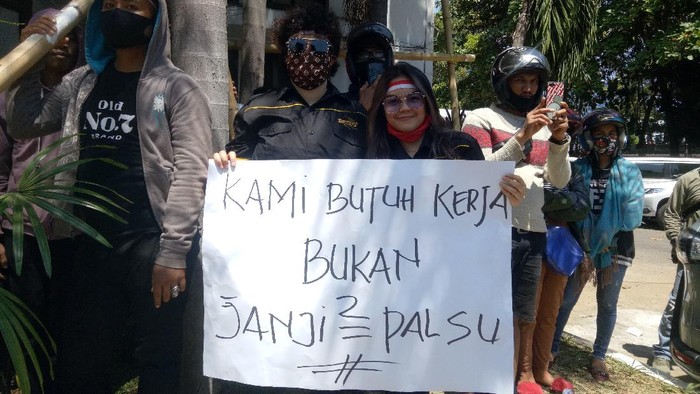 Old
No.7
BRAND
KAMI BUTUH KERJA
BUKAN
JANJI2 PALSU